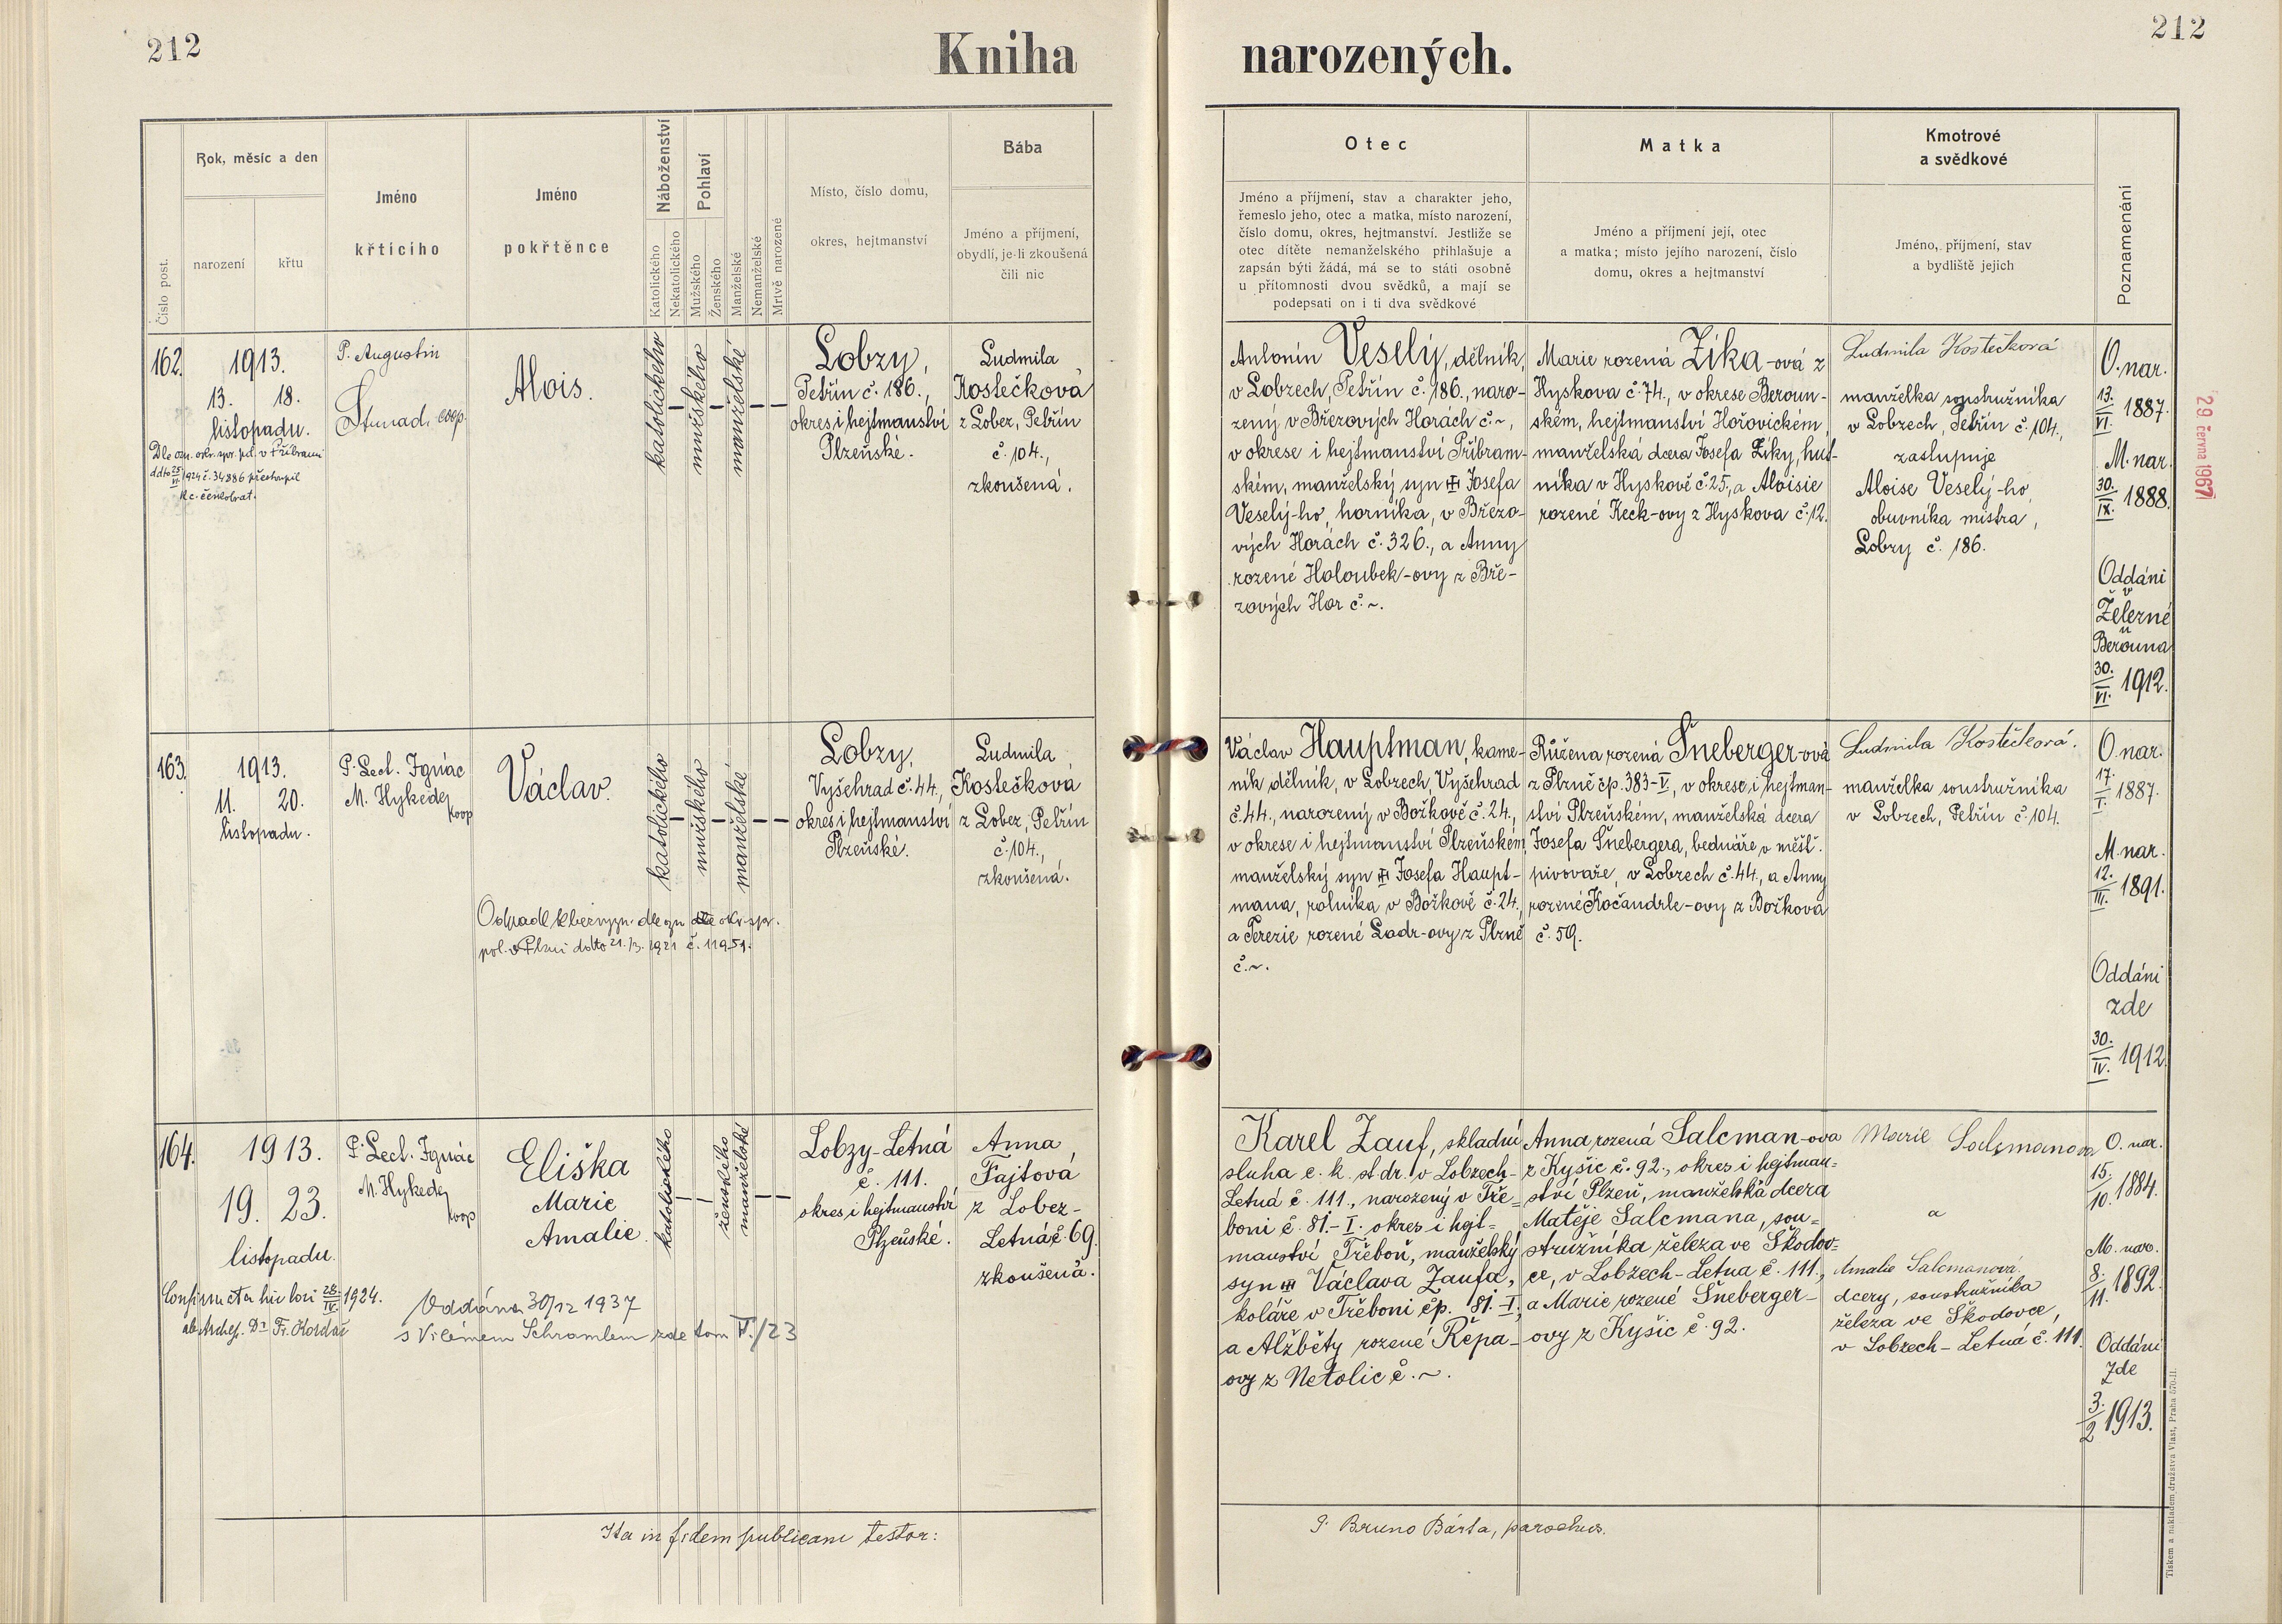 212
Kniha
narozených.
212
Číslo post.
Rok, měsíc a den
narození
křtu
Jméno
křticího
Jméno
pokřtěnce
Náboženství
Katolického
Nekatolického
Pohlaví
Mužského
Ženského
Manželské
Nemanželské
Mrtvě narozené
Místo, číslo domu,
okres, hejtmanství
Bába
Jméno a příjmení,
obydlí, je-li zkoušená
čili nic
Otec
Jméno a příjmení, stav a charakter jeho,
řemeslo jeho, otec a matka, místo narození,
číslo domu, okres, hejtmanství. Jestliže se
otec dítěte nemanželského přihlašuje a
zapsán býti žádá, má se to státi osobně
u přítomnosti dvou svědků, a mají se
podepsati on i ti dva svědkové
Matka
Jméno a příjmení její, otec
a matka; místo jejího narození, číslo
domu, okres a hejtmanství
Kmotrové
a svědkové
Jméno, příjmení, stav
a bydliště jejich
Poznamenání
162.
1913.
13. 18.
listopadu.
Dle ozn. okr. spr. pol. v Příbrami
ddto 25/VI 1924 č. 34886 přestoupil
k c. českobrat.
P. Augustin
coop.
Alois.
katolického
mužského
manželské
Lobzy,
Petřín č. 186.,
okres i hejtmanství
Plzeňské.
Ludmila
Kostečková
z Lobez, Petřín
č. 104.,
zkoušená.
Antonín Veselý, dělník,
v Lobzech, Petřín č. 186., naro-
zený v Březových Horách č. ~,
v okrese i hejtmanství Příbram-
ském, manželský syn Josefa
Veselý-ho, horníka, v Březo-
vých Horách č. 326., a Anny
rozené Holoubek-ovy z Bře-
zových Hor č. ~.
Marie rozená Zíka-ová z
Hyskova č. 74., v okrese Beroun-
ském, hejtmanství Hořovickém,
manželská dcera Josefa Zíky, hut-
níka v Hyskově č. 25., a Aloisie
rozené Keck-ovy z Hyskova č. 12.
Ludmila Kostečková
manželka soustružníka
v Lobzech, Petřín č. 104.,
zastupuje
Aloise Veselý-ho,
obuvníka mistra,
Lobzy č. 186.
O. nar.
13./VI. 1887.
M. nar.
30./IX. 1888.
Oddáni
v
Železné
u
Berouna
30./VI. 1912.
29 června 1967
163.
1913.
11. 20.
listopadu.
P. Lect. Ignác
M. Hykede
koop
Václav.
Odpadl k bezvyzn. dle ozn. okr. spr.
pol. v Plzni ddto 21./3. 1921 č. 11951.
katolického
mužského
manželské
Lobzy,
Vyšehrad č. 44.,
okres i hejtmanství
Plzeňské.
Ludmila
Kostečková
z Lobez, Petřín
č. 104.,
zkoušená.
Václav Hauptman, kame-
ník dělník, v Lobzech, Vyšehrad
č. 44., narozený v Božkově č. 24.,
v okrese i hejtmanství Plzeňském,
manželský syn Josefa Haupt-
mana, rolníka v Božkově č. 24.,
a Terezie rozené Ladr-ovy z Plzně
č. ~.
Růžena rozená Šneberger-ová
z Plzně čp. 383-V., v okrese i hejtman-
ství Plzeňském, manželská dcera
Josefa Šnebergera, bednáře v měšť.
pivovaře, v Lobzech č. 44., a Anny
rozené Kočandrle-ovy z Božkova
č. 59.
Ludmila Kostečková.
manželka soustružníka
v Lobzech, Petřín č. 104.
O. nar.
17./I. 1887.
M. nar.
12./III. 1891.
Oddáni
zde
30./IV. 1912.
164.
1913.
19. 23.
listopadu.
Confirmata hic loci 28./IV. 1924.
ab Archep. Dr. Fr. Kordač
P. Lect. Ignác
M. Hykede
koop
Eliška
Marie
Amalie.
Oddána 30/12 1937
s Vilémem Schramlem zde tom V./23
katolického
ženského
manželské
Lobzy-Letná
č. 111.
okres i hejtmanství
Plzeňské.
Anna
Fajtová
z Lobez-
Letná č. 69.
zkoušená.
Karel Zauf, skladní
sluha c. k. st. dr. v Lobzech-
Letná č. 111., narozený v Tře-
boni č. 81.-I. okres i hejt-
manství Třeboň, manželský
syn Václava Zaufa,
koláře v Třeboni čp. 81.-I.,
a Alžběty rozené Řepa-
ovy z Netolic č. ~.
Anna rozená Salcman-ova
z Kyšic č. 92., okres i hejtman-
ství Plzeň, manželská dcera
Matěje Salcmana, sou-
stružníka železa ve Škodov-
ce, v Lobzech-Letna č. 111.,
a Marie rozené Šneberger-
ovy z Kyšic č. 92.
Marie Salzmanova
a
Amalie Salcmanová.
dcery, soustružníka
železa ve Škodovce,
v Lobzech-Letná č. 111.
O. nar.
15./10. 1884.
M. nar.
8./11. 1892.
Oddáni
zde
3./2 1913.
Ita in fidem publicam testor:
P. Bruno Bárta, parochus.
Tiskem a nákladem družstva Vlast, Praha 570-II.